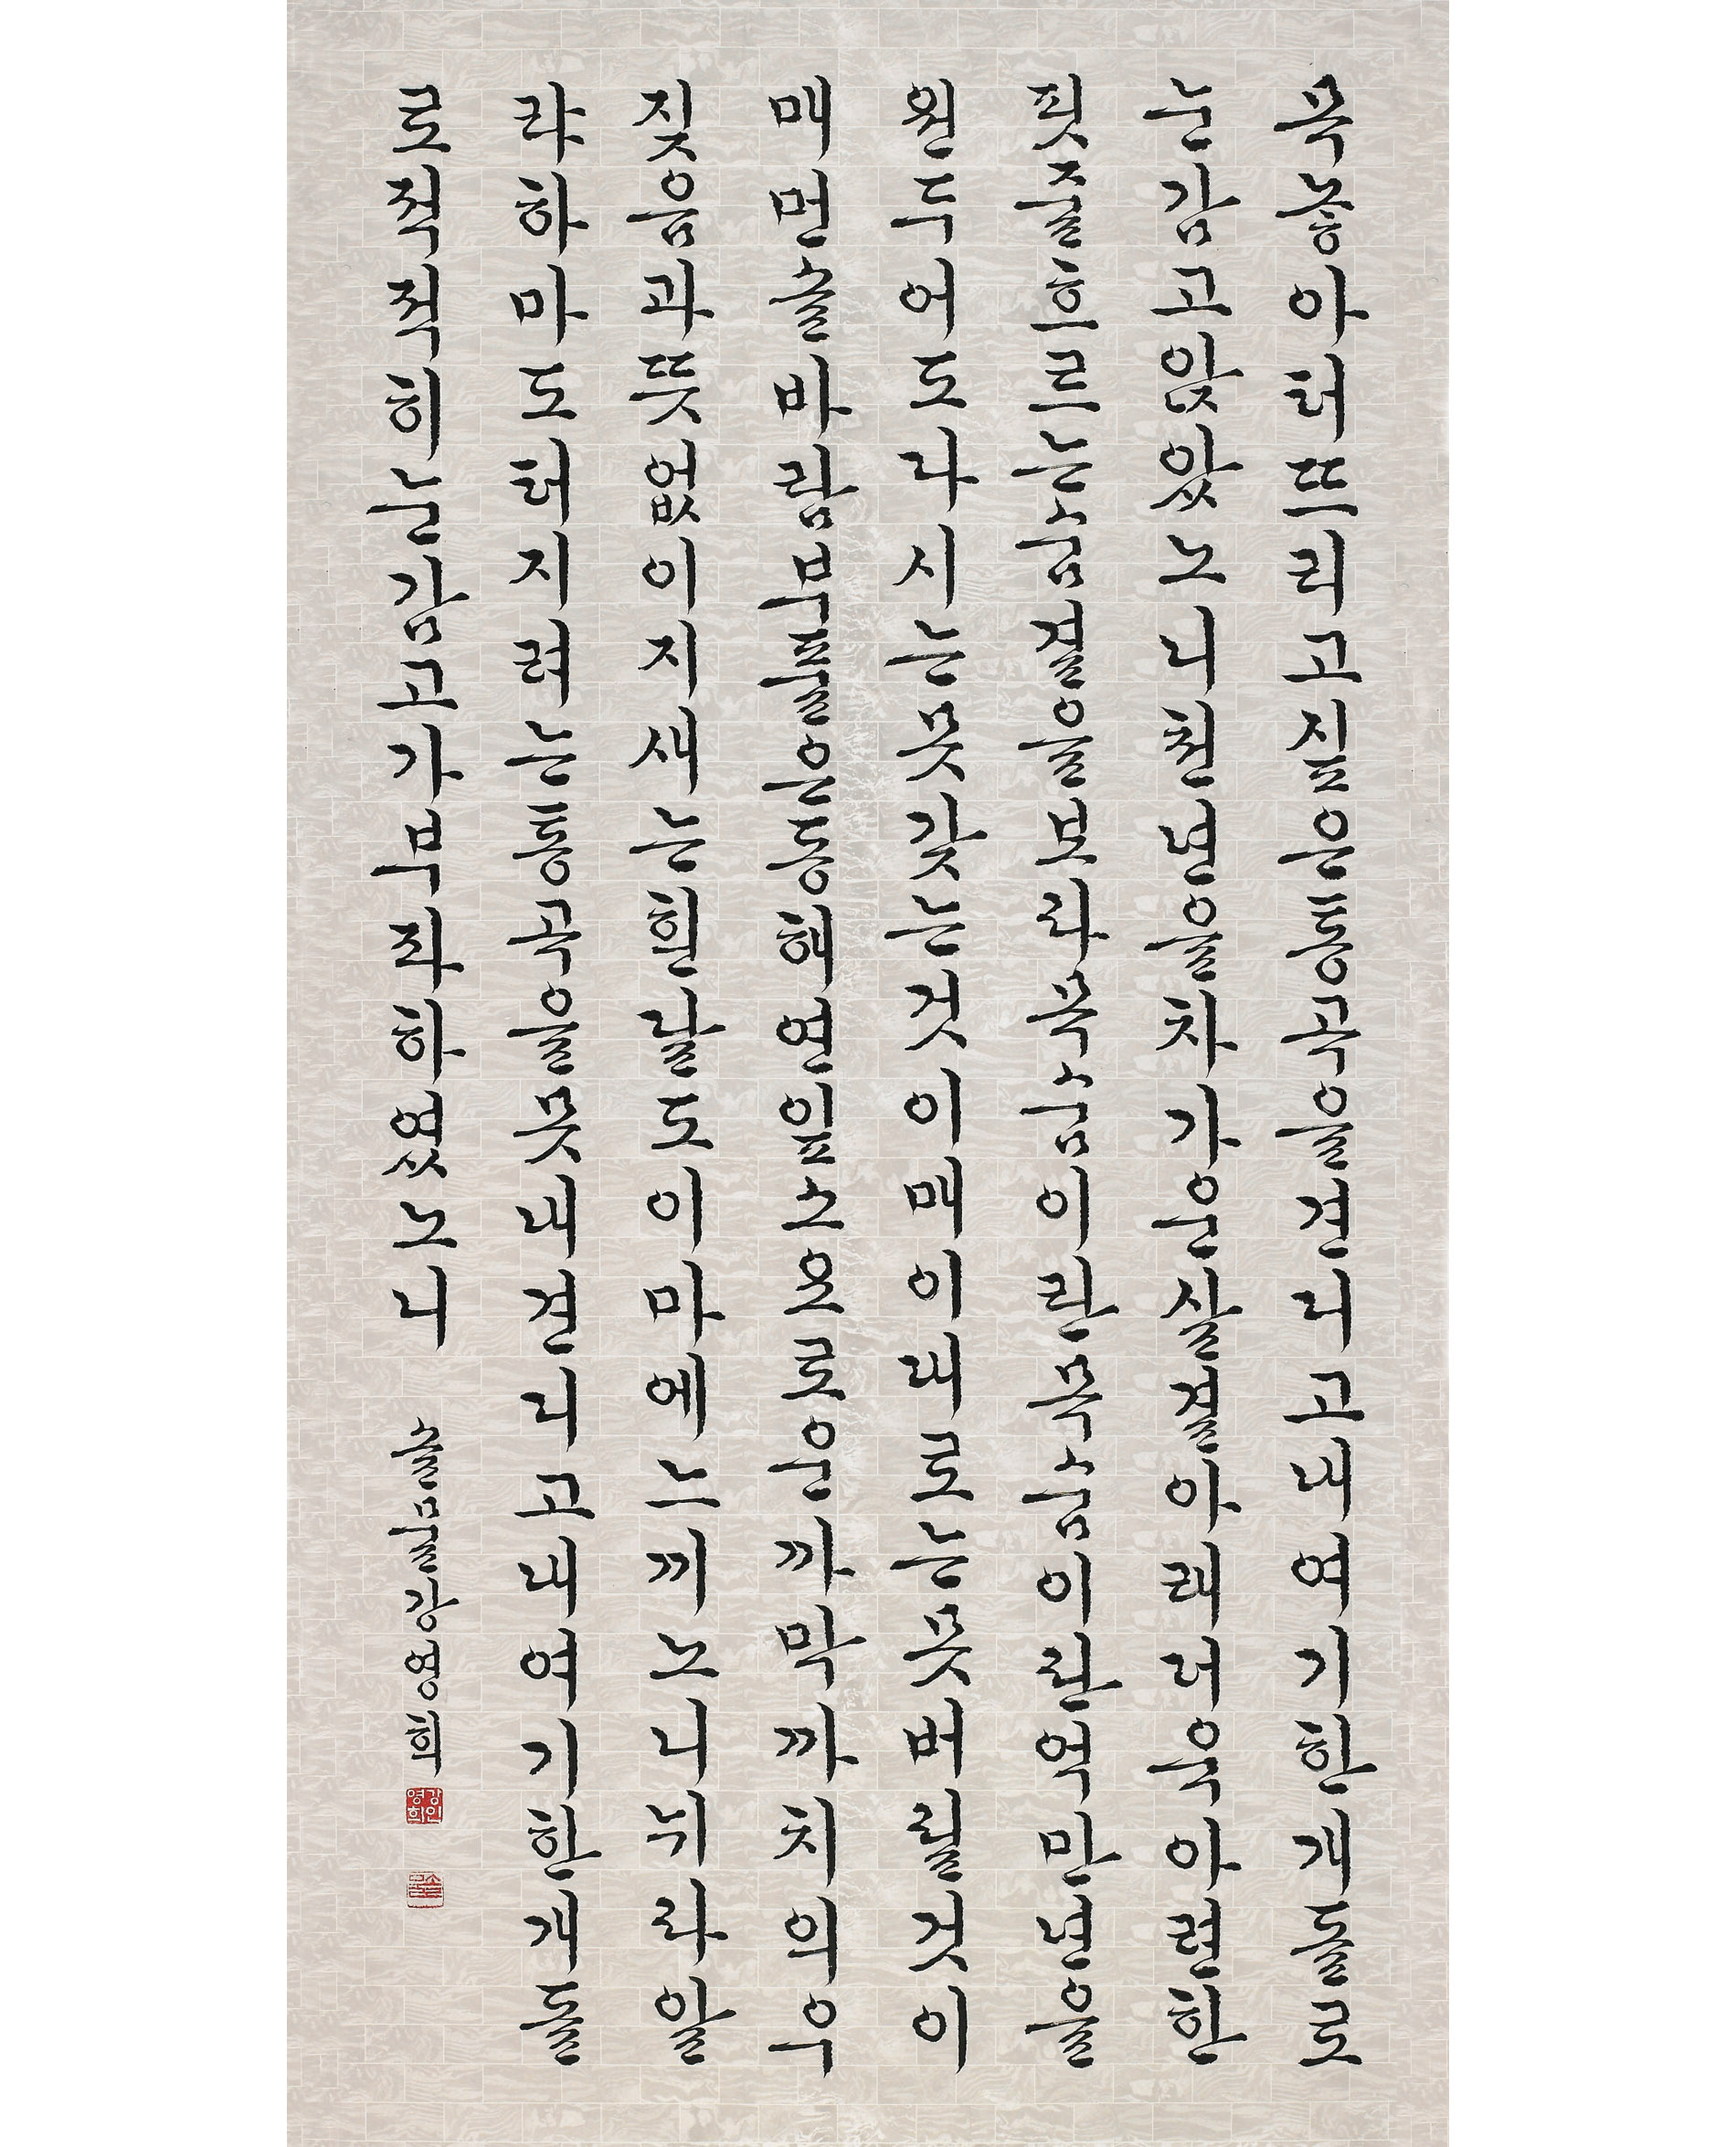 목놓아터뜨리고싶은통곡을견디고내여기한개돌로
눈감고앉았노니천년을차가운살결아래더욱아련한
핏줄흐르는숨결을보라목숨이란목숨이란억만년을
원두어도다시는못갖는것이매이대로는못버릴것이
매먼솔바람부풀은동해연잎소요로운까막까치의우
짖음과뜻없이지새는흰달도이마에느끼노니뉘라알
랴하마도터지려는통곡을못내견디고내여기한개돌
로적적히눈감고가부좌하였노니 솔물강영희
강영희인